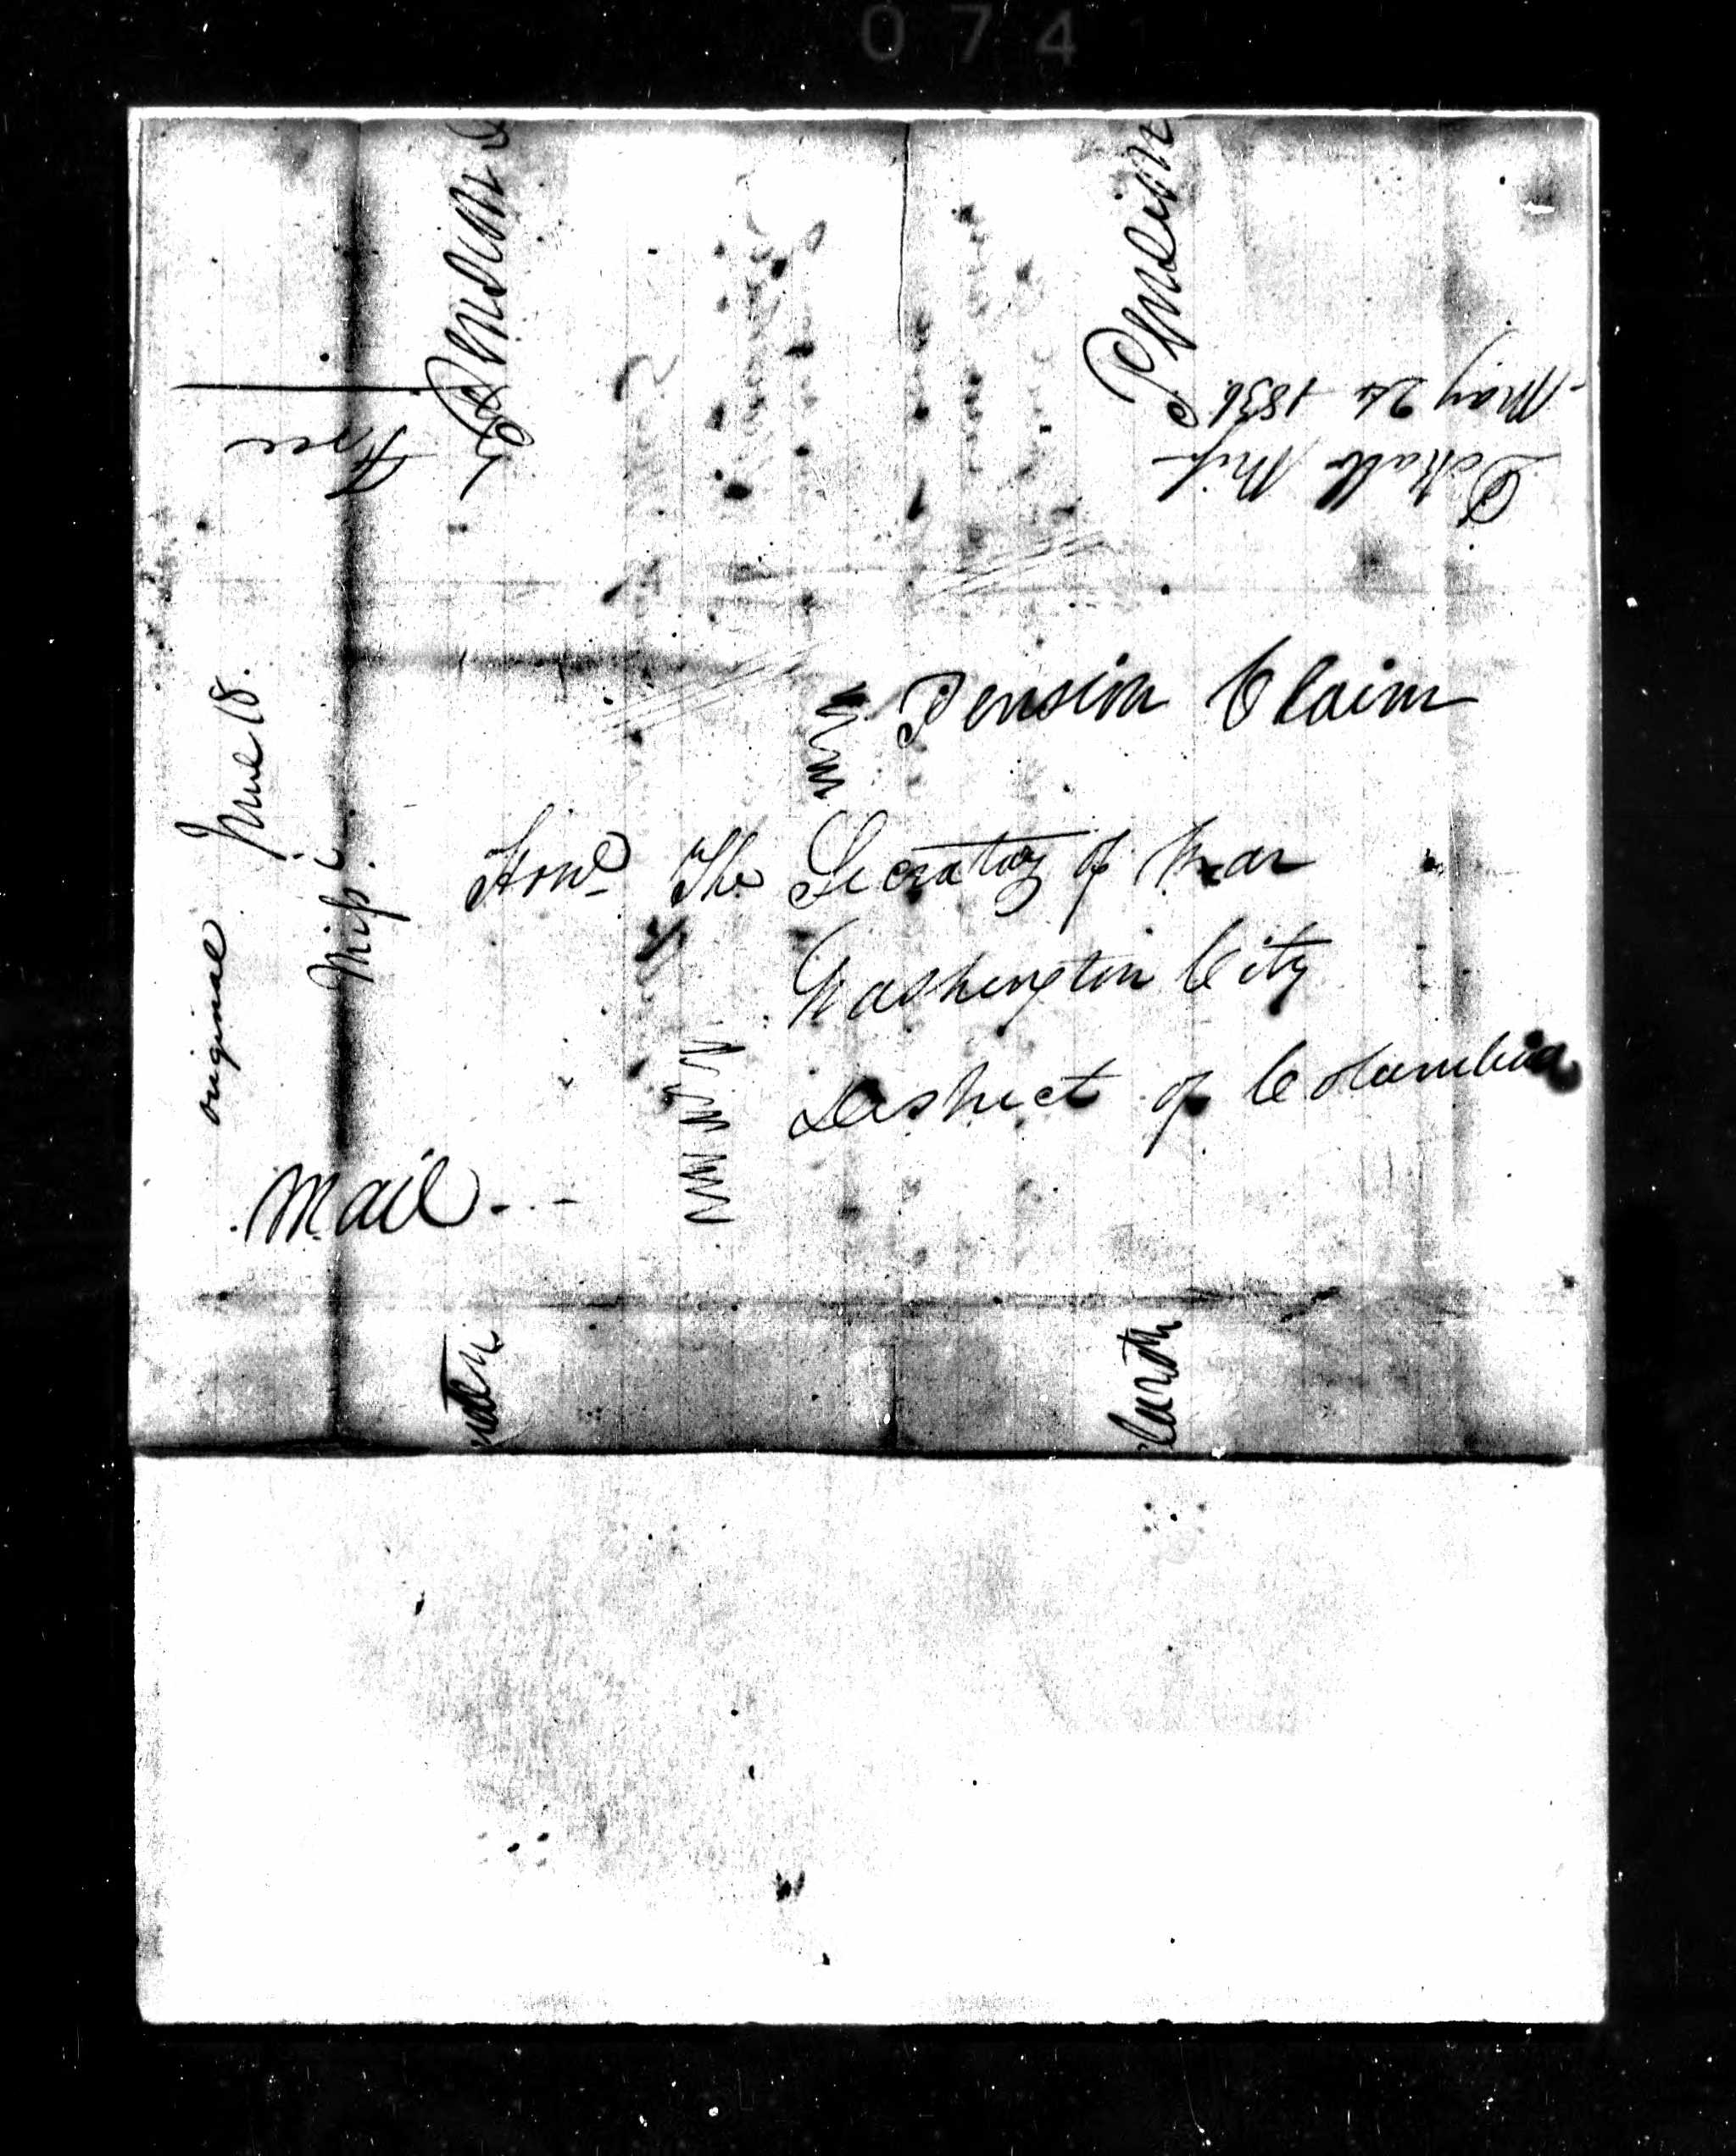 074
Pension
Pension
Free
Dekalb Miſs
May 26 1836
June 18.
Miſs.
original
Pension Claim
Honl. The Secratary of War
Washington City
District of Columbia
Mail